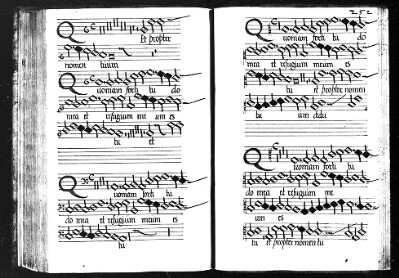 Et propter
nomen tuum
Quoniam forti tu do
mea et refugium me um es
tu et
Quoniam forti tu
do mea et refugium meum es
tu
252
Quoniam forti tu do
mea et refugium meum es
tu et propter nomen
tu um dedu
Quoniam forti tu
do mea et refugium me
um es
tu et propter nomen tu